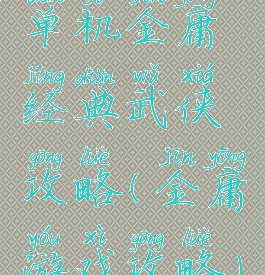 dān jī jīn yōng
单机金庸
jīng diǎn wǔ xiá
经典武侠
gōng lüè jīn yōng
攻略(金庸
yóu xì gōng lüè
游戏攻略)